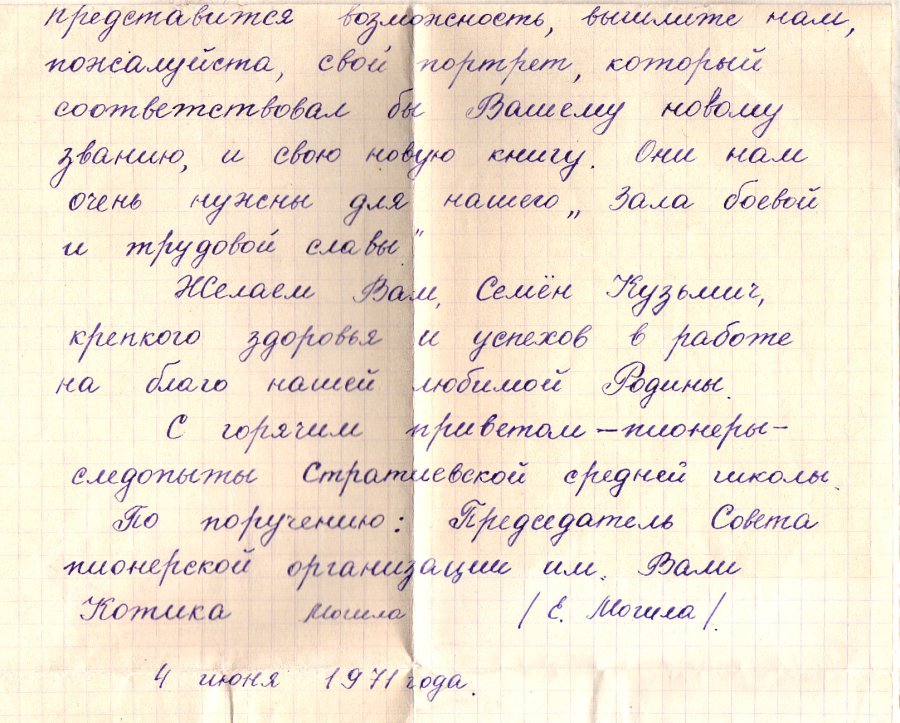 представится возможность, вышлите нам,
пожалуйста, свой портрет, который
соответствовал бы Вашему новому
званию, и свою новую книгу. Они нам
очень нужны для нашего „Зала боевой
и трудовой славы"
Желаем Вам, Семён Кузьмич,
крепкого здоровья и успехов в работе
на благо нашей любимой Родины.
С горячим приветом – пионеры-
следопыты Стратиевской средней школы.
По поручению: Председатель Совета
пионерской организации им. Вали
Котика Могила / Е. Могила /.
4 июня 1971 года.